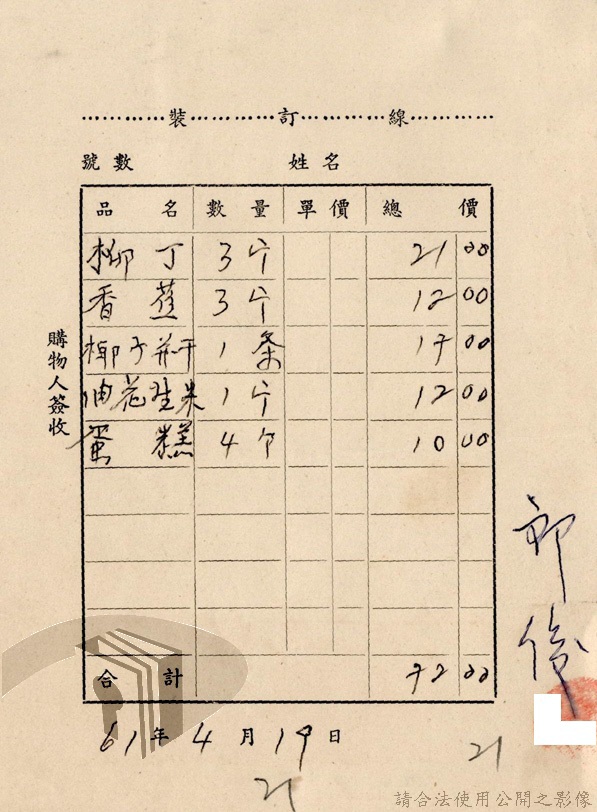 ………… 裝 ………… 訂 ………… 線 …………
號數 姓名
品名 數量 單價 總價
柳丁 3斤 21 00
香蕉 3斤 12 00
椰子并干 1条 17 00
油花生米 1斤 12 00
蛋糕 4个 10 00
合計 72 00
購物人簽收
61年4月19日
21
21
請合法使用公開之影像